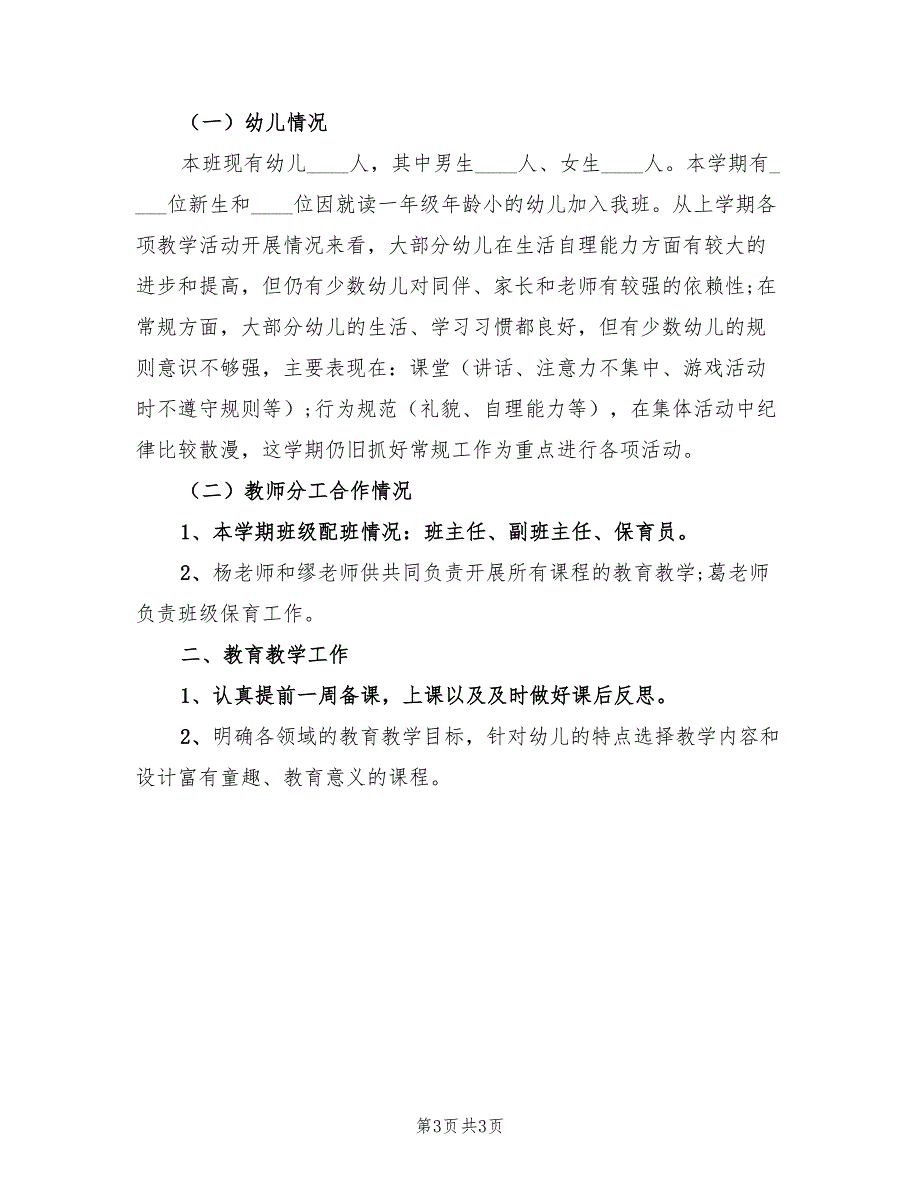 （一）幼儿情况
本班现有幼儿____人，其中男生____人、女生____人。本学期有_
___位新生和____位因就读一年级年龄小的幼儿加入我班。从上学期各
项教学活动开展情况来看，大部分幼儿在生活自理能力方面有较大的
进步和提高，但仍有少数幼儿对同伴、家长和老师有较强的依赖性;在
常规方面，大部分幼儿的生活、学习习惯都良好，但有少数幼儿的规
则意识不够强，主要表现在：课堂（讲话、注意力不集中、游戏活动
时不遵守规则等）;行为规范（礼貌、自理能力等），在集体活动中纪
律比较散漫，这学期仍旧抓好常规工作为重点进行各项活动。
（二）教师分工合作情况
1、本学期班级配班情况：班主任、副班主任、保育员。
2、杨老师和缪老师供共同负责开展所有课程的教育教学;葛老师
负责班级保育工作。
二、教育教学工作
1、认真提前一周备课，上课以及及时做好课后反思。
2、明确各领域的教育教学目标，针对幼儿的特点选择教学内容和
设计富有童趣、教育意义的课程。
第3页 共3页